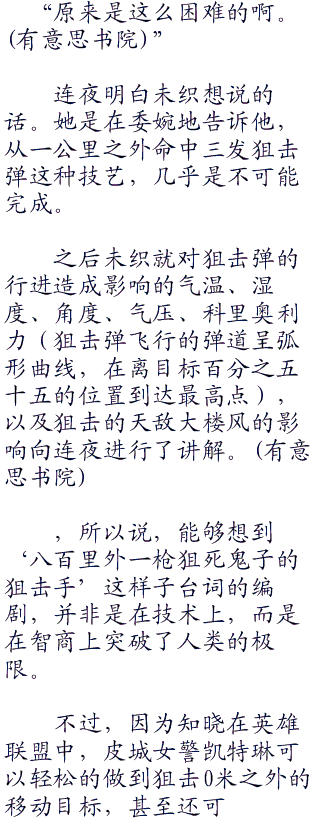 “原来是这么困难的啊。
(有意思书院)”
连夜明白未织想说的
话。她是在委婉地告诉他，
从一公里之外命中三发狙击
弹这种技艺，几乎是不可能
完成。
之后未织就对狙击弹的
行进造成影响的气温、湿
度、角度、气压、科里奥利
力（狙击弹飞行的弹道呈弧
形曲线，在离目标百分之五
十五的位置到达最高点），
以及狙击的天敌大楼风的影
响向连夜进行了讲解。(有意
思书院)
，所以说，能够想到
‘八百里外一枪狙死鬼子的
狙击手’这样子台词的编
剧，并非是在技术上，而是
在智商上突破了人类的极
限。
不过，因为知晓在英雄
联盟中，皮城女警凯特琳可
以轻松的做到狙击0米之外的
移动目标，甚至还可